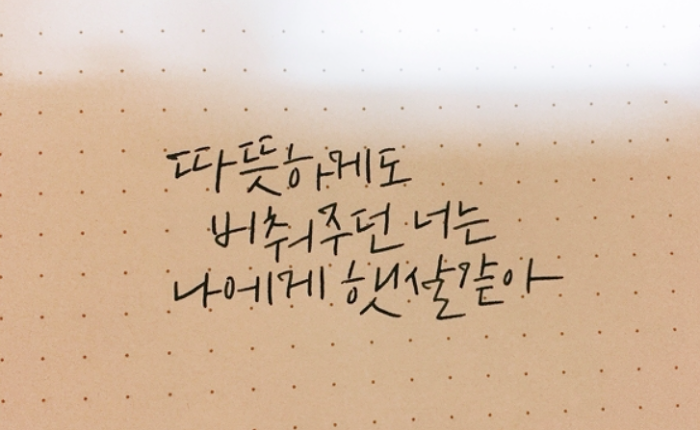 따뜻하게도
버춰주던 너는
나에게 햇살같아